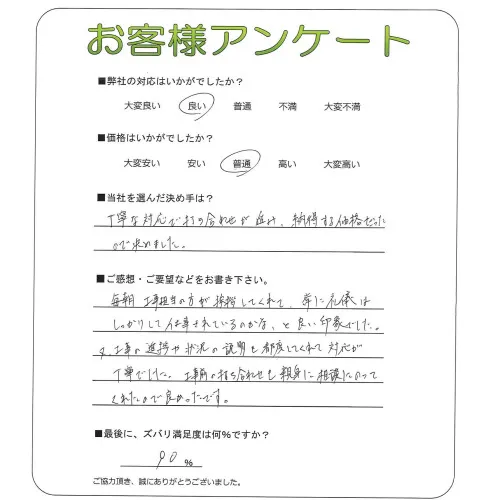 お客様アンケート
■弊社の対応はいかがでしたか？
大変良い 良い 普通 不満 大変不満
■価格はいかがでしたか？
大変安い 安い 普通 高い 大変高い
■当社を選んだ決め手は？
丁寧な対応で打ち合わせが進み、納得する価格だった
ので決めました。
■ご感想・ご要望などをお書き下さい。
毎朝 工事担当の方が挨拶してくれて、常に礼儀は
しっかりして仕事されているのかな、と良い印象でした。
又、工事の進捗や状況の説明も都度してくれて対応が
丁寧でした。工事前の打ち合わせも親身に相談にのって
くれたので良かったです。
■最後に、ズバリ満足度は何％ですか？
90 %
ご協力頂き、誠にありがとうございました。